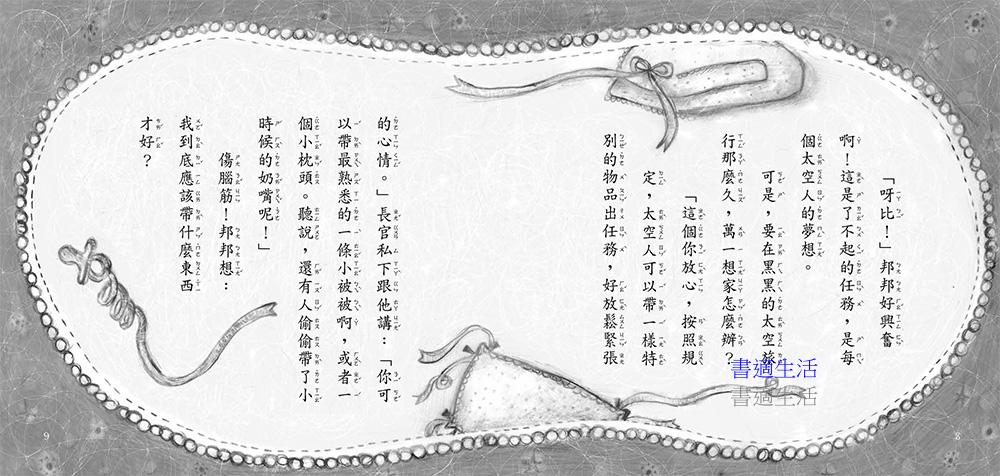 「呀比！」邦邦好興奮
啊！這是了不起的任務，是每
個太空人的夢想。
可是，要在黑黑的太空旅
行那麼久，萬一想家怎麼辦？
「這個你放心，按照規
定，太空人可以帶一樣特
別的物品出任務，好放鬆緊張
的心情。」長官私下跟他講：「你可
以帶最熟悉的一條小被被啊，或者一
個小枕頭。聽說，還有人偷偷帶了小
時候的奶嘴呢！」
傷腦筋！邦邦想：
我到底應該帶什麼東西
才好？
書適生活
書適生活
8
9